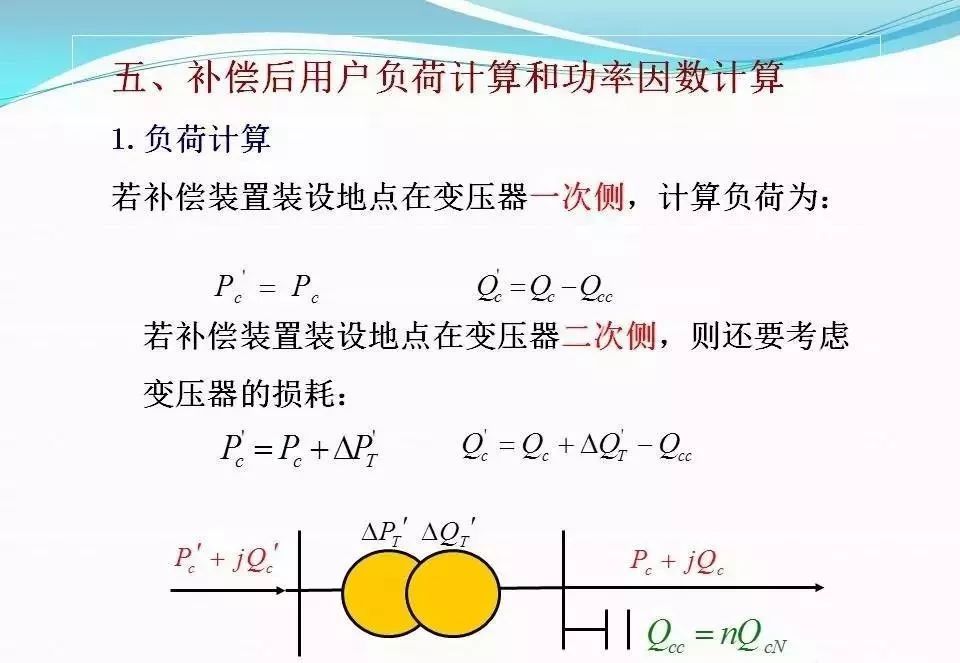 五、补偿后用户负荷计算和功率因数计算
1. 负荷计算
若补偿装置装设地点在变压器一次侧，计算负荷为：
P_c' = P_c    Q_c' = Q_c − Q_cc
若补偿装置装设地点在变压器二次侧，则还要考虑
变压器的损耗：
P_c' = P_c + ΔP_T'    Q_c' = Q_c + ΔQ_T' − Q_cc
ΔP_T' ΔQ_T'
P_c' + jQ_c'    P_c + jQ_c
Q_cc = nQ_cN